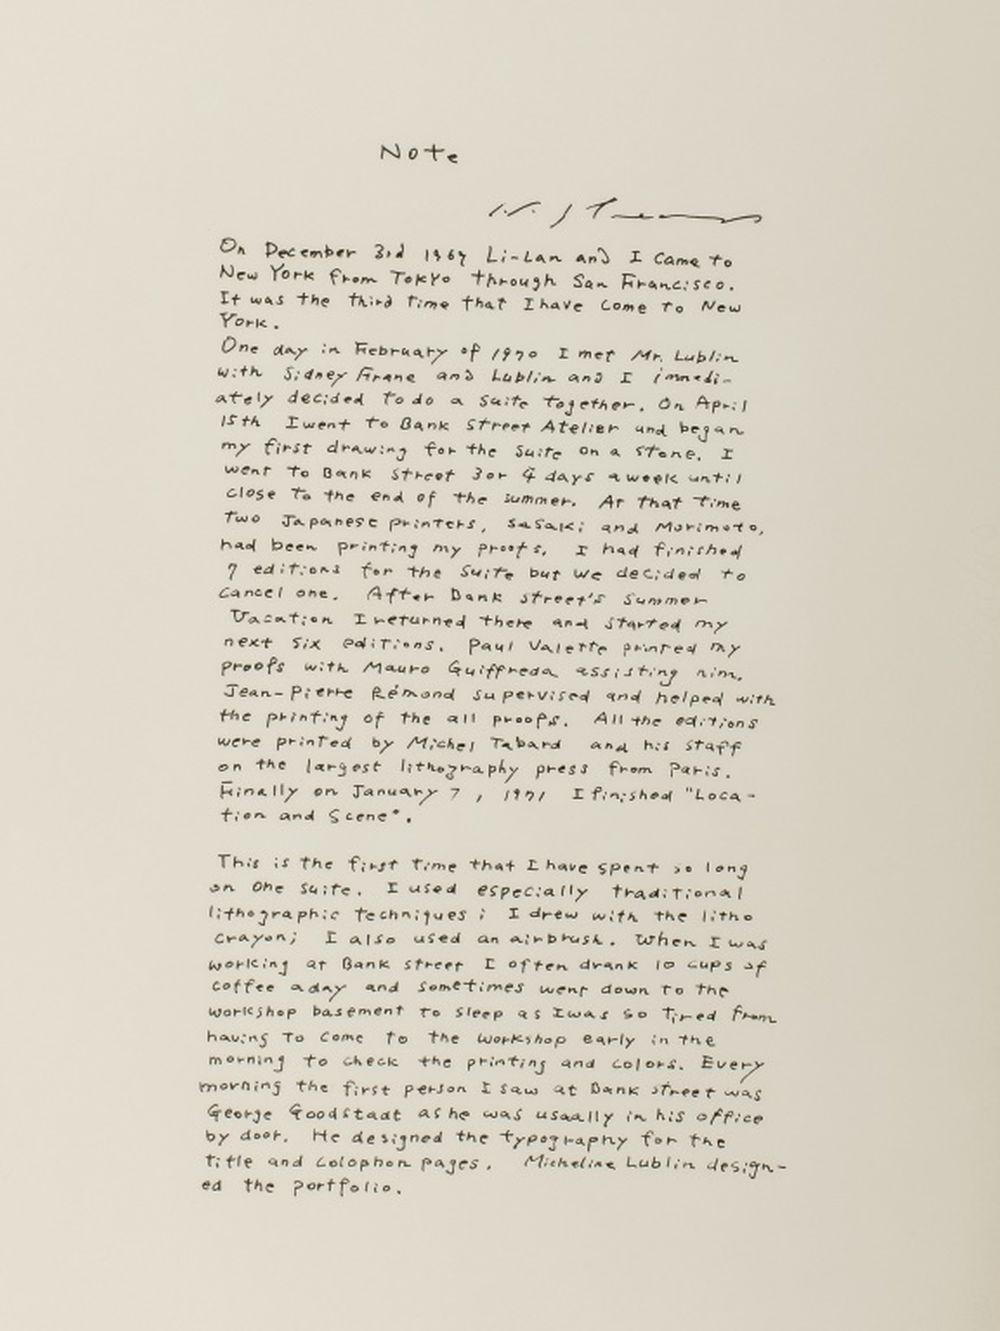 Note
On December 3rd 1969 Li-Lan and I came to
New York from Tokyo through San Francisco.
It was the third time that I have come to New
York.
One day in February of 1970 I met Mr. Lublin
with Sidney Frane and Lublin and I immedi-
ately decided to do a suite together. On April
15th I went to Bank Street Atelier and began
my first drawing for the suite on a stone. I
went to Bank Street 3 or 4 days a week until
close to the end of the summer. At that time
two Japanese printers, Sasaki and Morimoto,
had been printing my proofs. I had finished
7 editions for the suite but we decided to
cancel one. After Bank Street's summer
vacation I returned there and started my
next six editions. Paul Valette printed my
proofs with Mauro Guiffreda assisting him.
Jean-Pierre Rémond supervised and helped with
the printing of the all proofs. All the editions
were printed by Michel Tabard and his staff
on the largest lithography press from Paris.
Finally on January 7, 1971 I finished "Loca-
tion and Scene".
This is the first time that I have spent so long
on one suite. I used especially traditional
lithographic techniques; I drew with the litho
crayon; I also used an airbrush. When I was
working at Bank Street I often drank 10 cups of
coffee a day and sometimes went down to the
workshop basement to sleep as I was so tired from
having to come to the workshop early in the
morning to check the printing and colors. Every
morning the first person I saw at Bank Street was
George Goodstadt as he was usually in his office
by door. He designed the typography for the
title and colophon pages. Micheline Lublin design-
ed the portfolio.